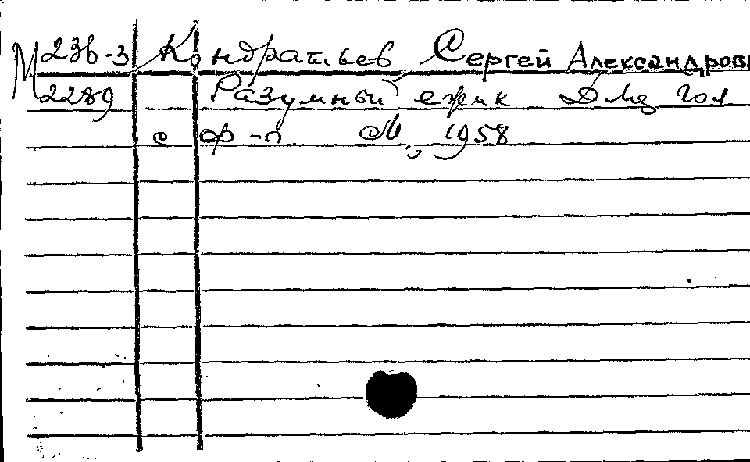 М 236-3 Кондратьев Сергей Александров
2289 Разумный ежик Для гол
с ф-п М., 1958